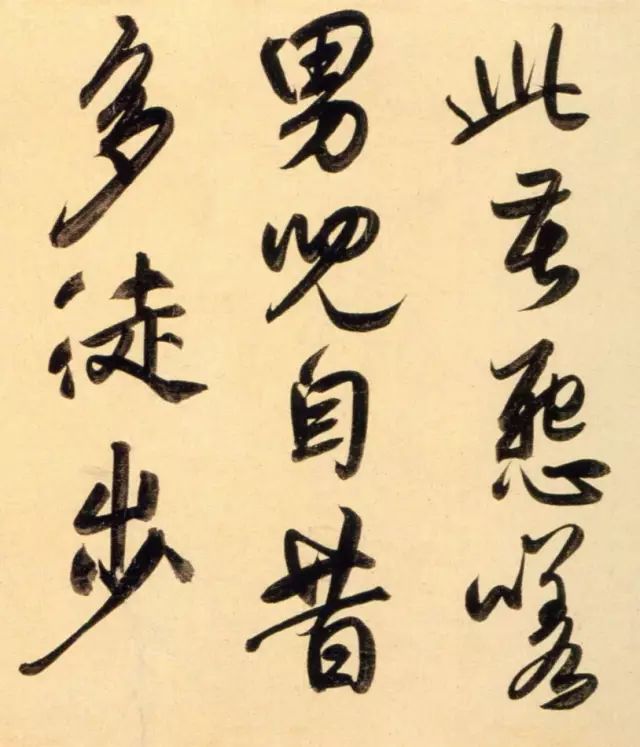 此嗟
男兒自昔
多徒步